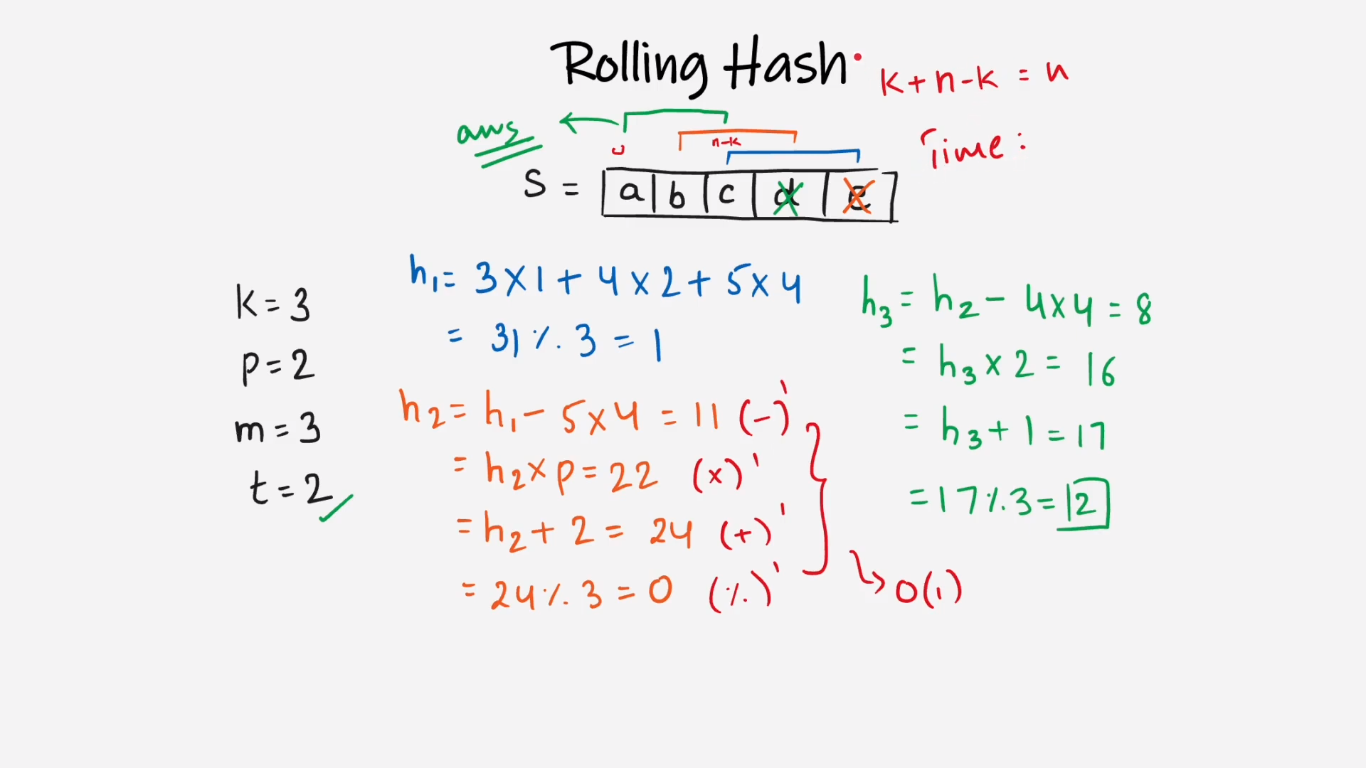 Rolling Hash
k+n-k = n
Time :
ans
n-k
S = a b c d e
k=3
p=2
m=3
t=2
h₁= 3×1+4×2+5×4
= 31 % 3 = 1
h₂= h₁- 5×4 = 11 (-)'
= h₂×p=22 (x)'
=h₂+2 = 24 (+)'
= 24 % 3 = 0 (%)'
O(1)
h₃= h₂- 4×4 = 8
= h₃×2= 16
= h₃+1=17
=17%3=2